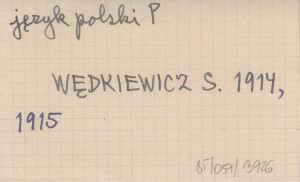 język polski P
WĘDKIEWICZ S. 1914,
1915
BF/059/3926